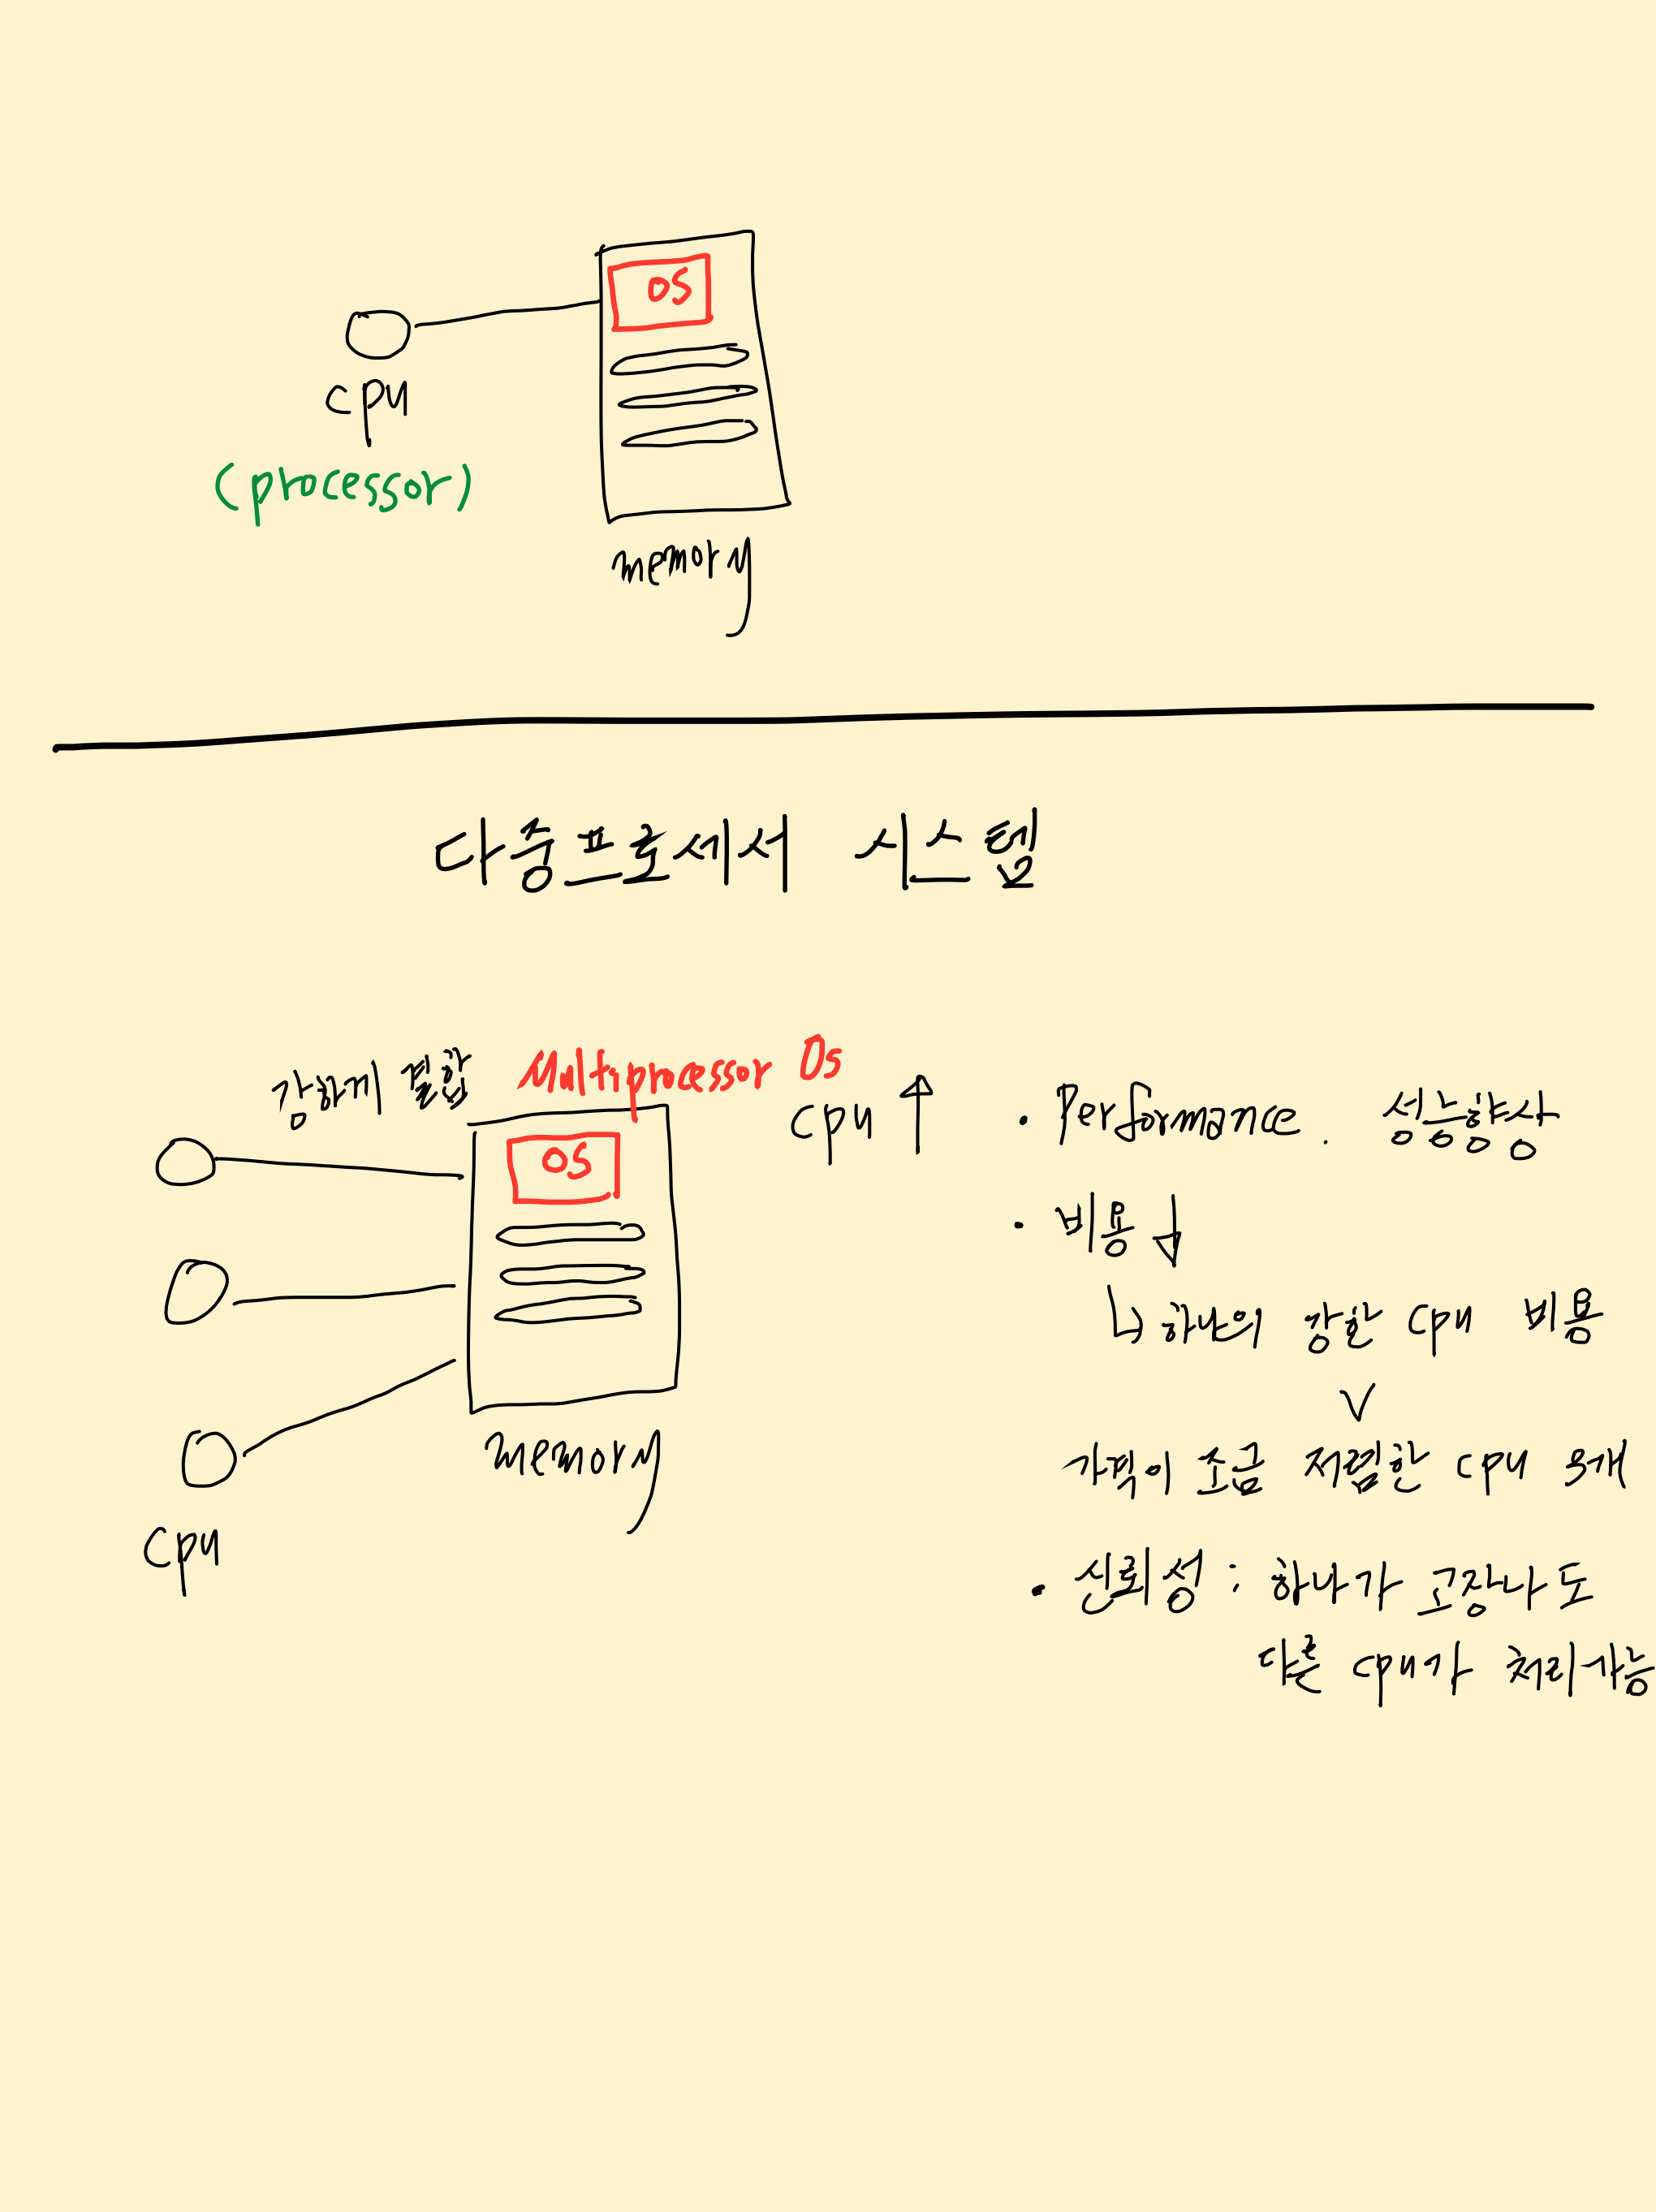 OS
cpu
(processor)
memory
다중프로세서 시스템
강하게 결합
Multiprocessor Os
OS
memory
cpu
cpu ↑
· Performance. 성능향상
· 비용 ↓
↳ 하나의 강한 cpu 비용
∨
가격이 조금 저렴한 cpu 3개
· 신뢰성 : 하나가 고장나도
다른 cpu가 처리가능